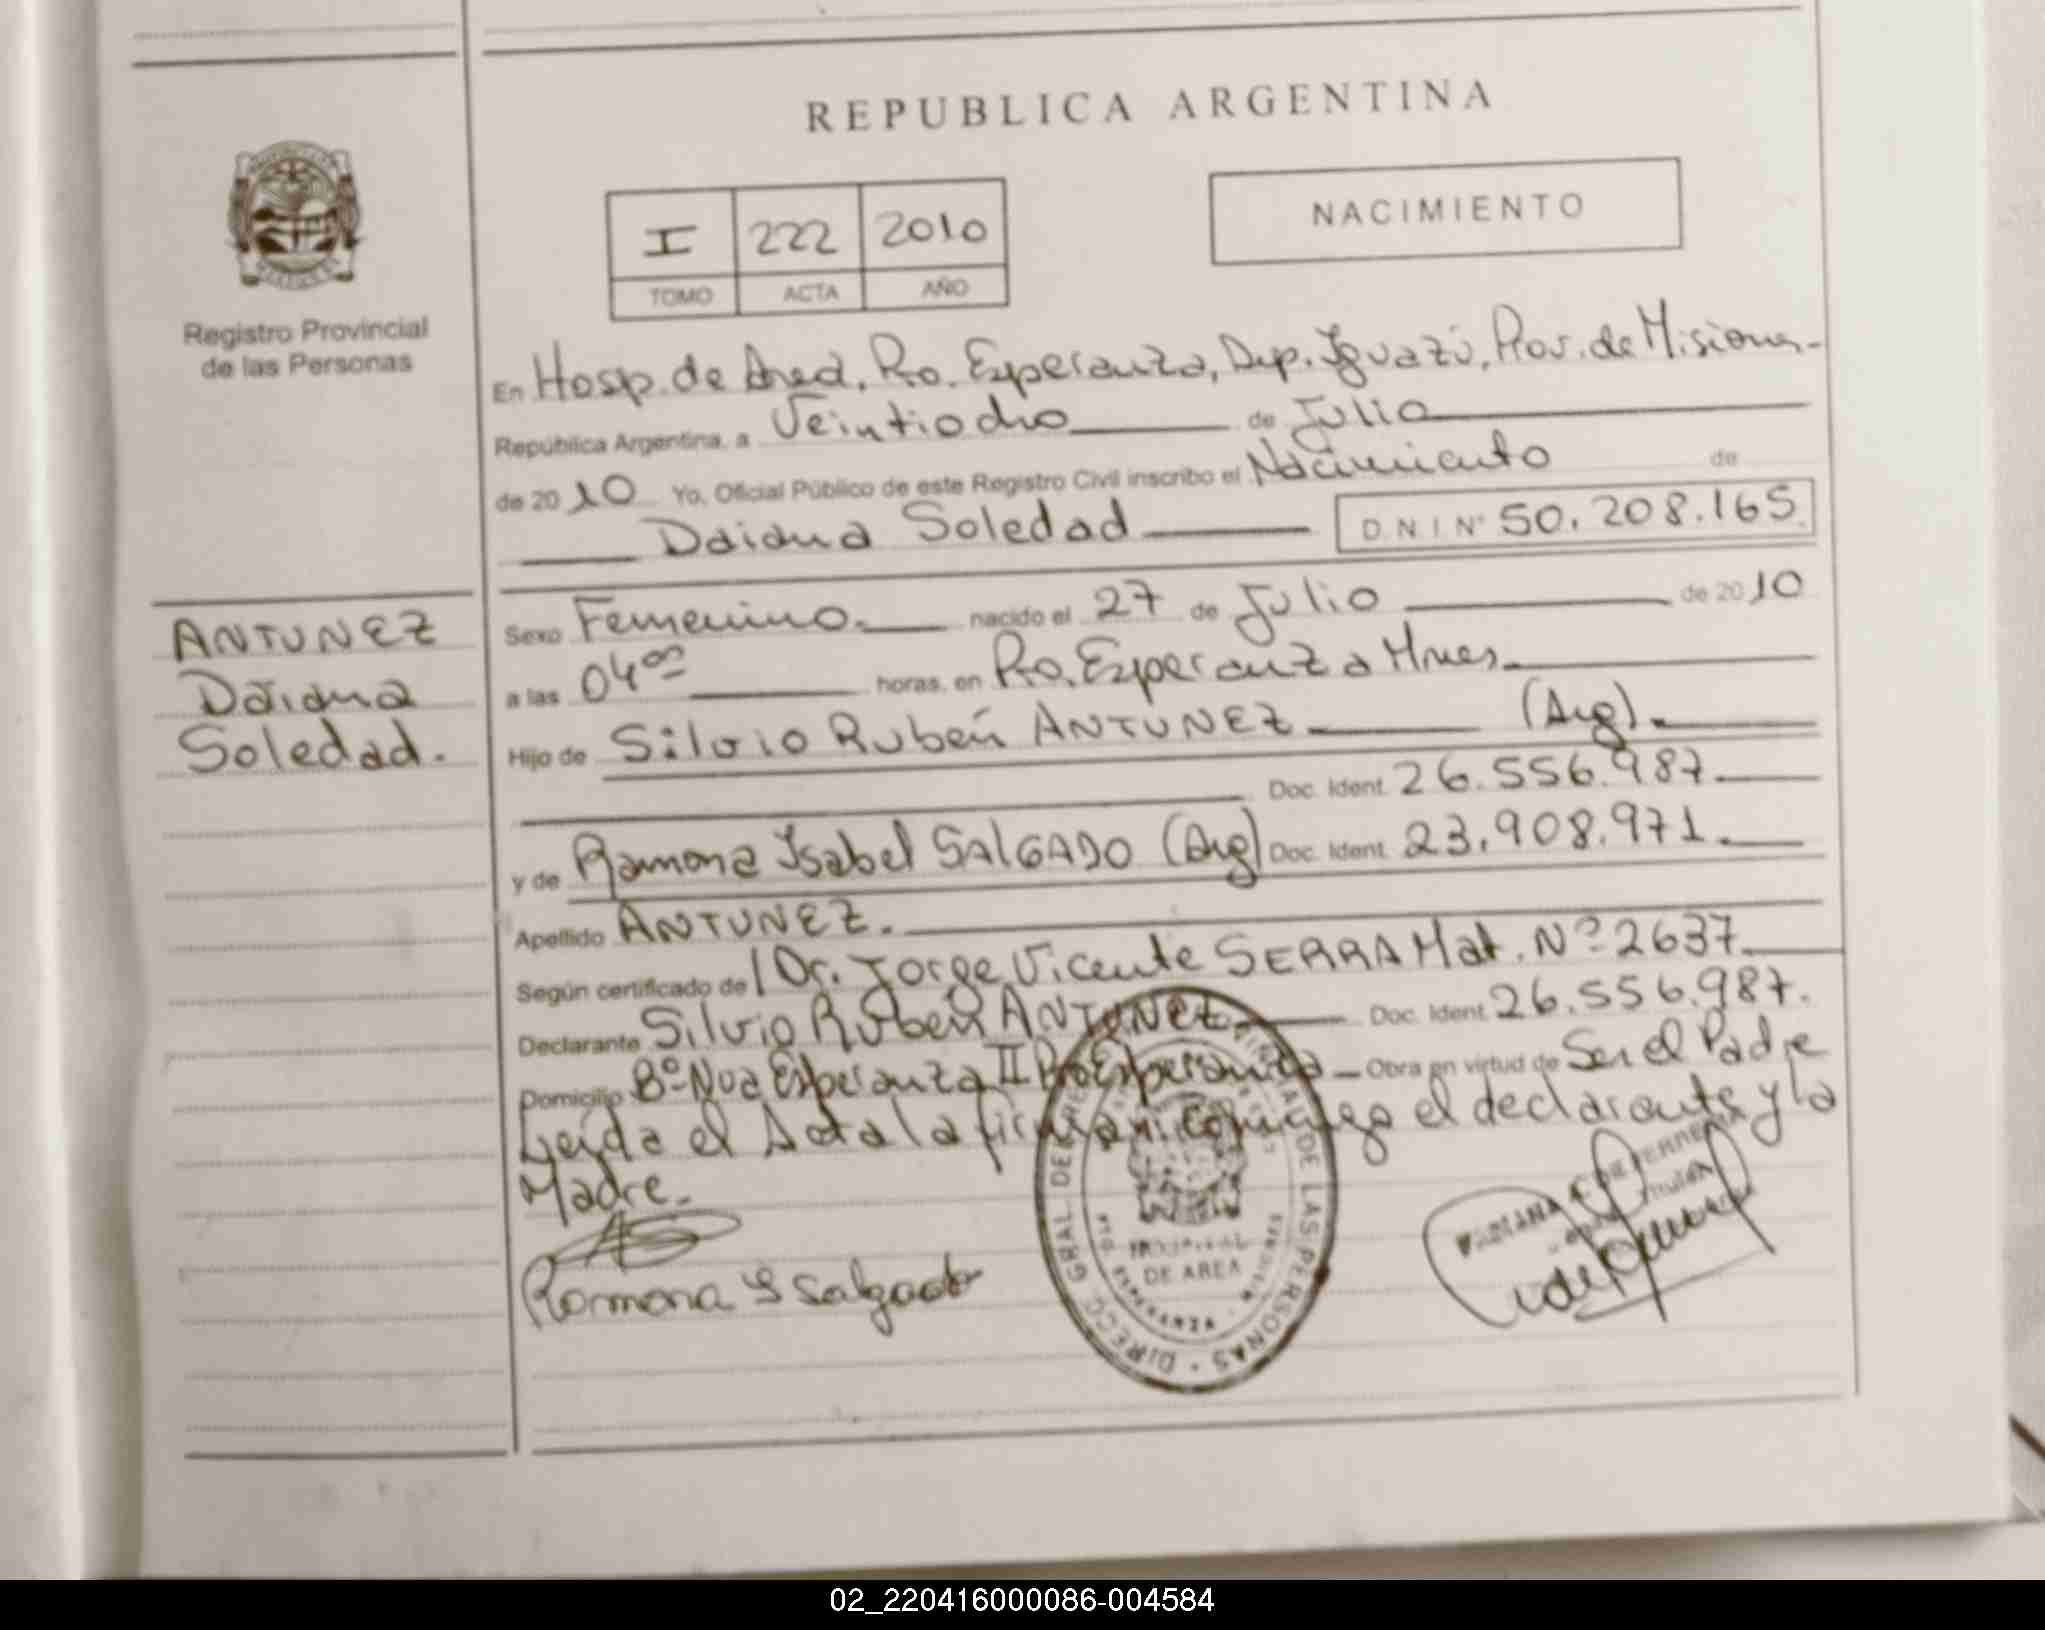 REPUBLICA ARGENTINA
I 222 2010
TOMO ACTA AÑO
NACIMIENTO
Registro Provincial
de las Personas
En Hosp. de Area, Pto. Esperanza, Dep. Iguazú, Prov. de Misiones-
República Argentina, a Veintiocho de Julio
de 2010 Yo, Oficial Público de este Registro Civil inscribo el Nacimiento de
Daiana Soledad D N I Nº 50.208.165
ANTUNEZ
Daiana
Soledad.
Sexo Femenino. nacido el 27 de Julio de 2010
a las 04 00 horas, en Pto. Esperanza Mnes.
Hijo de Silvio Rubén ANTUNEZ (Arg).
Doc. Ident. 26.556.987.
y de Ramona Isabel SALGADO (Arg) Doc. Ident. 23.908.971.
Apellido ANTUNEZ.
Según certificado de l Dr. Jorge Vicente SERRA Mat. Nº 2637
Declarante Silvio Rubén ANTUNEZ. Doc. Ident. 26.556.987.
Domicilio Bº Nva Esperanza II Pto Esperanza Obra en virtud de Ser el Padre
Leída el Acta la firman conmigo el declarante y la
Madre.
Ramona I Salgado
DIRECC. GRAL. DE LAS PERSONAS
HOSPITAL
DE AREA
02_220416000086-004584